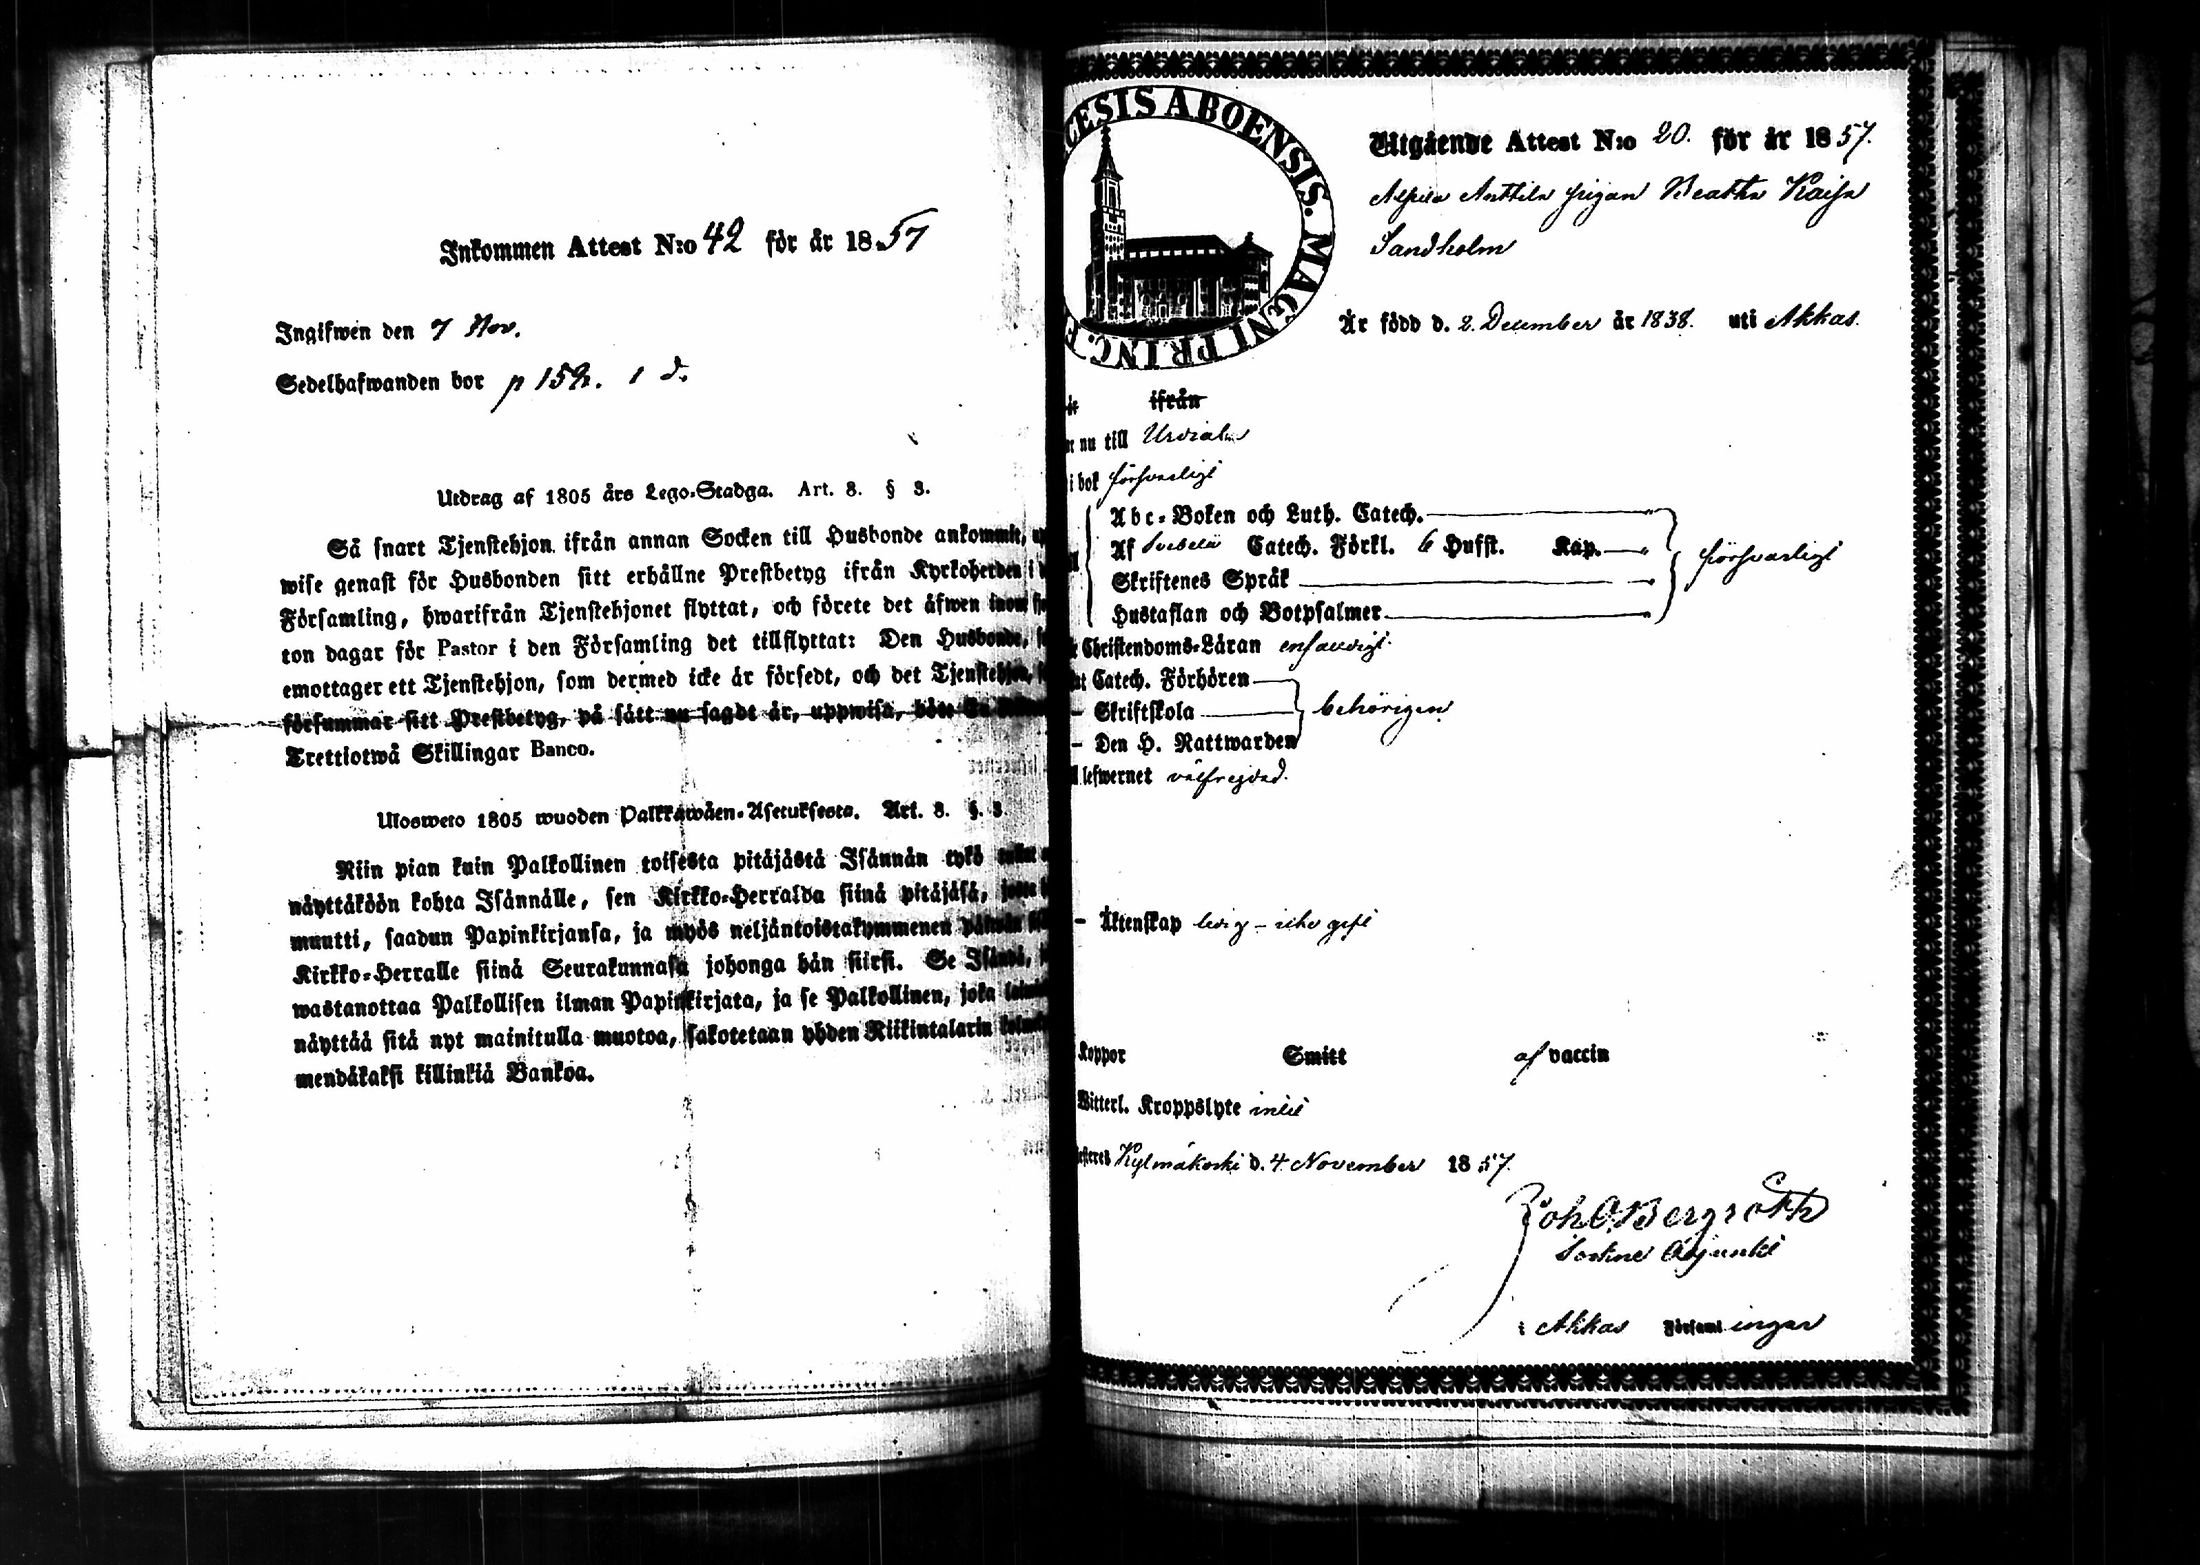 Inkommen Attest N:o 42 för år 1857
Ingifwen den 7 Nov.
Sedelhafwanden bor p 152. 1 d.
Utdrag af 1805 års Lego-Stadga. Art. 8. § 3.
Så snart Tjenstehjon ifrån annan Socken till Husbonde ankommit,
wise genast för Husbonden sitt erhållne Prestbetyg ifrån Kyrkoherden i
Församling, hwarifrån Tjenstehjonet flyttat, och förete det äfwen inom
ton dagar för Pastor i den Församling det tillflyttat: Den Husbonde,
emottager ett Tjenstehjon, som dermed icke är försedt, och det Tjenstehjon,
försummar sitt Prestbetyg, på sätt nu sagdt är, uppwisa, böte
Trettiotwå Skillingar Banco.
Ulosweto 1805 wuoden Palkkawäen-Asetuksesta. Art. 8. §. 3.
Niin pian kuin Palkollinen toisesta pitäjästä Isännän tykö
näyttäköön kohta Isännälle, sen Kirkko-Herralda siinä pitäjäsä,
muutti, saadun Papinkirjansa, ja myös neljäntoistakymmenen päiwän
Kirkko-Herralle siinä Seurakunnasa johonga hän siirsi. Se Isändä,
wastanottaa Palkollisen ilman Papinkirjata, ja se Palkollinen, joka
näyttää sitä nyt mainitulla muotoa, sakotetaan yhden Riikintalarin
mendäkaksi killinkiä Bankoa.
CESIS ABOENSIS. MAGNI PRINC. F
Utgående Attest N:o 20. för år 1857.
Anttila pigan Beatha Kaisa
Sandholm
Är född d. 2. December år 1838. uti Akkas.
ifrån
nu till Urdiala
i bok försvarligt
Abc-Boken och Luth. Catech.
Af Svebelii Catech. Förkl. 6 Hufst. Kap.
Skriftenes Språk
försvarligt
Hustaflan och Botpsalmer
Christendoms-Läran enfaldigt.
Catech. Förhören
- Skriftskola behörigen
- Den H. Nattwarden
lefwernet välfrejdad.
- Äktenskap ledig - icke gift
Koppor Smitt af vaccin
Witterl. Kroppslyte intet
Kylmäkoski d. 4 November 1857.
Joh O Bergroth
Sockne Adjunkt
i Akkas Församlingar